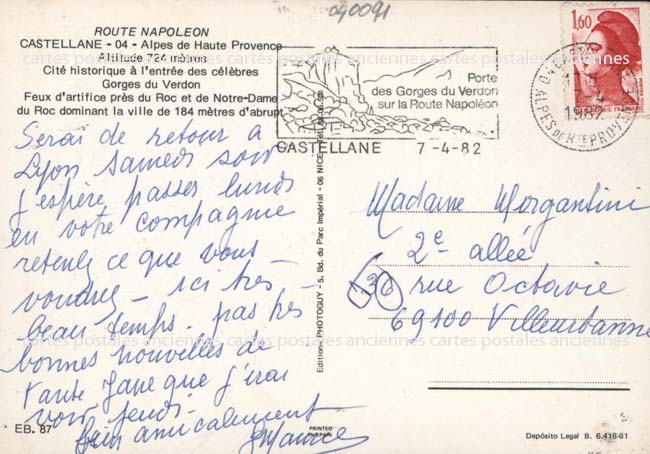 040091
ROUTE NAPOLEON
CASTELLANE - 04 - Alpes de Haute Provence
Altitude 724 mètres
Cité historique à l'entrée des célèbres
Gorges du Verdon
Feux d'artifice près du Roc et de Notre-Dame
du Roc dominant la ville de 184 mètres d'abrupt
Serai de retour à
Lyon samedi soir
j'espère passer lundi
en votre compagnie
retenez ce que vous
voudrez - ici très
beau temps. pas très
bonnes nouvelles de
tante Jane que j'irai
voir jeudi.
bien amicalement
EB. 87
Porte
des Gorges du Verdon
sur la Route Napoléon
CASTELLANE 7-4-82
1,60
1982
ALPES DE HTE PROVENCE
Editions PHOTOGUY - 5, Bd. du Parc Impérial - 06 NICE
Madame Morgantini
2e allée
126 rue Octavie
69100 Villeurbanne
PRINTED
Depósito Legal B. 6.418-81
cartes postales anciennes